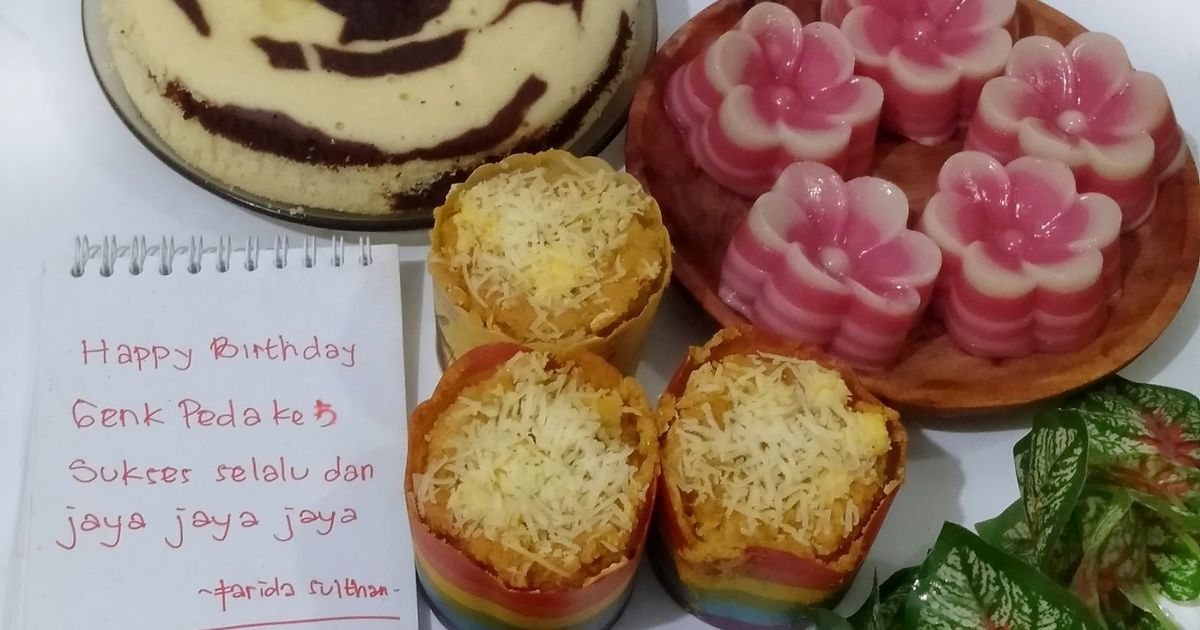 Happy Birthday
Genk Pedake 5
Sukses selalu dan
jaya jaya jaya
~farida sulthan-